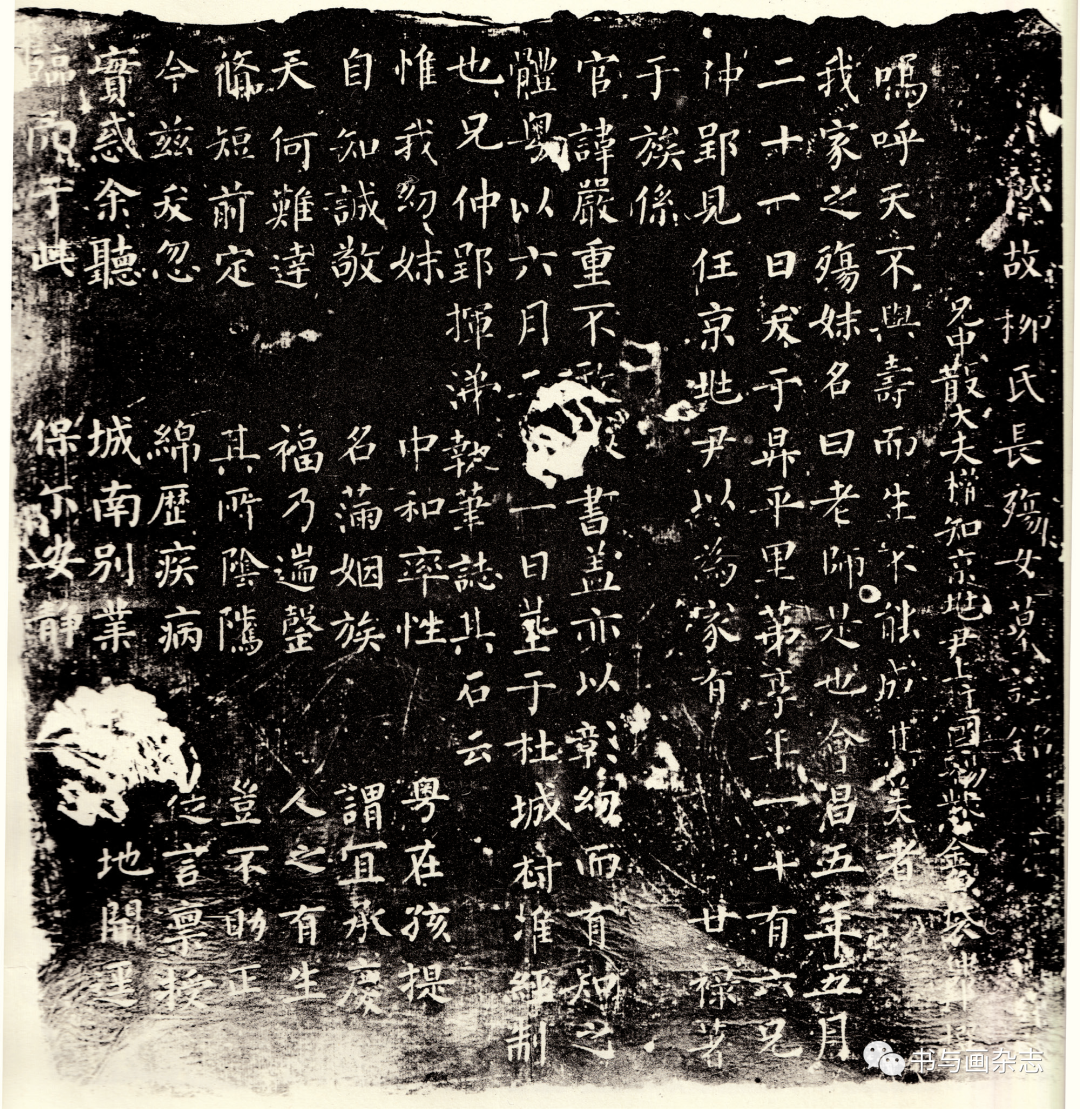 故柳氏長殤女墓誌銘
兄中散大夫權知京地尹上柱國賜紫金
嗚呼天不與壽而生不能成其美者
我家之殤妹名曰老師是也會昌五年五月
二十一日歿于昇平里第享年一十有六兄
仲郢見任京地尹以為家有 廿 祿著
于 族係
官諱嚴重不 書蓋亦以彰絢而有知之
體粵以六月 一日塟于杜城村准經制
也兄仲郢揮涕執筆誌其石云
惟我幼妹 中和率性 粵在孩提
自知誠敬 名滿姻族 謂宜承慶
天何難達 福乃遄罄 人之有生
脩短前定 其所陰隲 豈不助正
今茲歿忽 綿歷疾病 言稟授
實惑余聽 城南別業 地開運
臨而于此 保下安静
书与画杂志